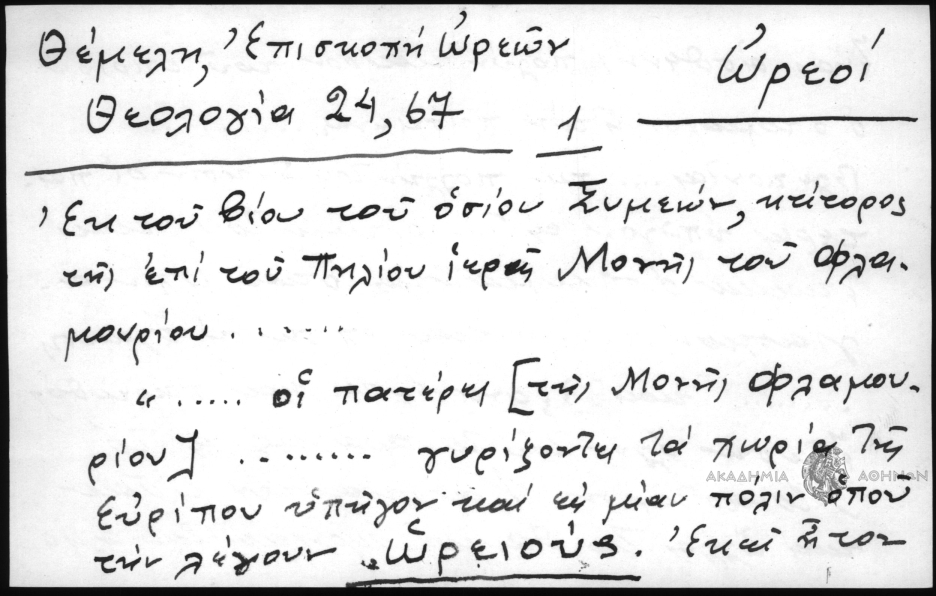 Θέμελη, Ἐπισκοπή Ὠρεῶν
Ὠρεοί
Θεολογία 24, 67
1
Ἐκ τοῦ βίου τοῦ ὁσίου Συμεών, κτίτορος
τῆς ἐπί τοῦ Πηλίου ἱερᾶς Μονῆς τοῦ Φλα-
μουρίου . . . . . . .
" ..... οἱ πατέρες [τῆς Μονῆς Φλαμου-
ρίου] ......... γυρίζοντες τά χωρία τῆς
Εὐρίπου ὑπῆγον καί εἰς μίαν πόλιν ὁποῦ
τήν λέγουν Ὠρειούς. Ἐκεῖ ἦτον
ΑΚΑΔΗΜΙΑ ΑΘΗΝΩΝ